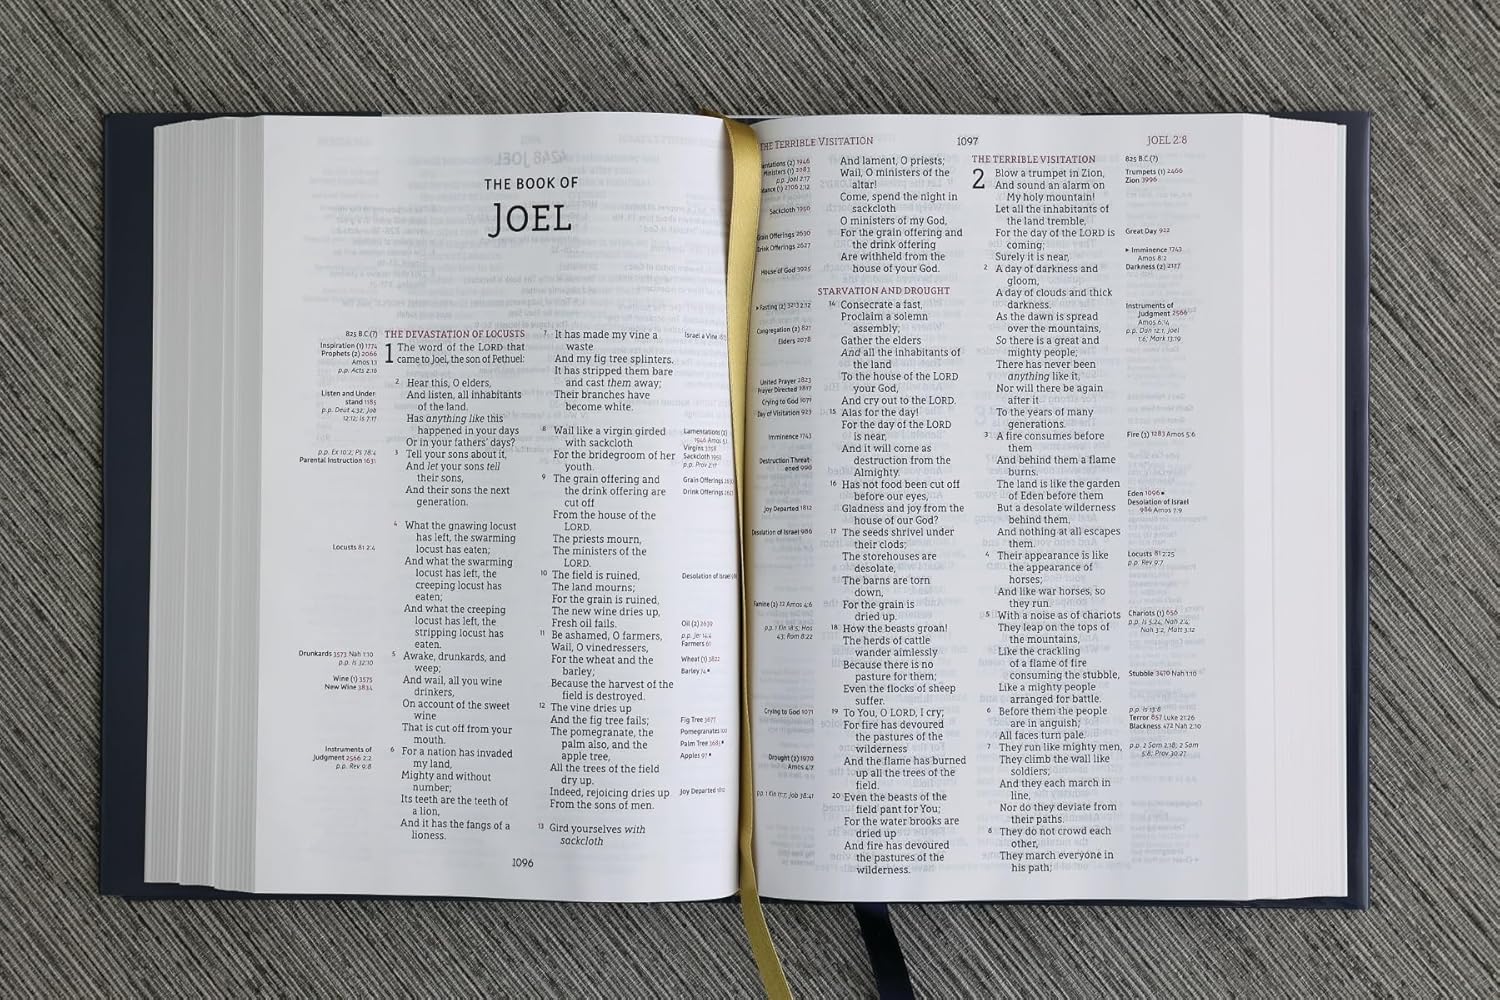 THE BOOK OF
JOEL
825 B.C.(?)
Inspiration (1) 1774
Prophets (2) 2066
Amos 1:1
p.p. Acts 2:16
Listen and Under-
stand 1185
p.p. Deut 4:32; Job
12:12; Is 7:17
p.p. Ex 10:2; Ps 78:4
Parental Instruction 1631
Locusts 81 2:4
Drunkards 3573 Nah 1:10
p.p. Is 32:10
Wine (1) 3575
New Wine 3834
Instruments of
Judgment 2566 2:2
p.p. Rev 9:8
THE DEVASTATION OF LOCUSTS
1 The word of the LORD that
came to Joel, the son of Pethuel:
2 Hear this, O elders,
And listen, all inhabitants
of the land.
Has anything like this
happened in your days
Or in your fathers' days?
3 Tell your sons about it,
And let your sons tell
their sons,
And their sons the next
generation.
4 What the gnawing locust
has left, the swarming
locust has eaten;
And what the swarming
locust has left, the
creeping locust has
eaten;
And what the creeping
locust has left, the
stripping locust has
eaten.
5 Awake, drunkards, and
weep;
And wail, all you wine
drinkers,
On account of the sweet
wine
That is cut off from your
mouth.
6 For a nation has invaded
my land,
Mighty and without
number;
Its teeth are the teeth of
a lion,
And it has the fangs of a
lioness.
7 It has made my vine a
waste
And my fig tree splinters.
It has stripped them bare
and cast them away;
Their branches have
become white.
8 Wail like a virgin girded
with sackcloth
For the bridegroom of her
youth.
9 The grain offering and
the drink offering are
cut off
From the house of the
LORD.
The priests mourn,
The ministers of the
LORD.
10 The field is ruined,
The land mourns;
For the grain is ruined,
The new wine dries up,
Fresh oil fails.
11 Be ashamed, O farmers,
Wail, O vinedressers,
For the wheat and the
barley;
Because the harvest of the
field is destroyed.
12 The vine dries up
And the fig tree fails;
The pomegranate, the
palm also, and the
apple tree,
All the trees of the field
dry up.
Indeed, rejoicing dries up
From the sons of men.
13 Gird yourselves with
sackcloth
Israel a Vine
Lamentations (2)
1946 Amos 5:1
Virgins
Sackcloth 1950
p.p. Prov 2:17
Grain Offerings
Drink Offerings
Desolation of Israel
Oil (2) 2639
p.p. Jer 14:4
Farmers 61
Wheat (1)
Barley 74
Fig Tree
Pomegranates
Palm Tree
Apples 97
Joy Departed
1096
THE TERRIBLE VISITATION
1097
JOEL 2:8
Ministers (1) 2083
p.p. Joel 2:17
(1) 2706 2:12
Sackcloth 1950
Grain Offerings 2630
Drink Offerings 2627
House of God 3925
Fasting (2) 3213 2:12
Congregation (2) 821
Elders 2078
United Prayer 2823
Prayer Directed
Crying to God 1071
Day of Visitation 923
Imminence 1743
Destruction Threat-
ened 990
Joy Departed 1812
Desolation of Israel 986
Famine (2) 12 Amos 4:6
p.p. 1 Kin 18:5; Hos
4:3; Rom 8:22
Crying to God 1071
Drought (2) 1970
Amos 4:7
p.p. 1 Kin 17:7; Job 38:41
And lament, O priests;
Wail, O ministers of the
altar!
Come, spend the night in
sackcloth
O ministers of my God,
For the grain offering and
the drink offering
Are withheld from the
house of your God.
STARVATION AND DROUGHT
14 Consecrate a fast,
Proclaim a solemn
assembly;
Gather the elders
And all the inhabitants of
the land
To the house of the LORD
your God,
And cry out to the LORD.
15 Alas for the day!
For the day of the LORD
is near,
And it will come as
destruction from the
Almighty.
16 Has not food been cut off
before our eyes,
Gladness and joy from the
house of our God?
17 The seeds shrivel under
their clods;
The storehouses are
desolate,
The barns are torn
down,
For the grain is
dried up.
18 How the beasts groan!
The herds of cattle
wander aimlessly
Because there is no
pasture for them;
Even the flocks of sheep
suffer.
19 To You, O LORD, I cry;
For fire has devoured
the pastures of the
wilderness
And the flame has burned
up all the trees of the
field.
20 Even the beasts of the
field pant for You;
For the water brooks are
dried up
And fire has devoured
the pastures of the
wilderness.
THE TERRIBLE VISITATION
2 Blow a trumpet in Zion,
And sound an alarm on
My holy mountain!
Let all the inhabitants of
the land tremble,
For the day of the LORD is
coming;
Surely it is near,
2 A day of darkness and
gloom,
A day of clouds and thick
darkness.
As the dawn is spread
over the mountains,
So there is a great and
mighty people;
There has never been
anything like it,
Nor will there be again
after it
To the years of many
generations.
3 A fire consumes before
them
And behind them a flame
burns.
The land is like the garden
of Eden before them
But a desolate wilderness
behind them,
And nothing at all escapes
them.
4 Their appearance is like
the appearance of
horses;
And like war horses, so
they run.
5 With a noise as of chariots
They leap on the tops of
the mountains,
Like the crackling
of a flame of fire
consuming the stubble,
Like a mighty people
arranged for battle.
6 Before them the people
are in anguish;
All faces turn pale.
7 They run like mighty men,
They climb the wall like
soldiers;
And they each march in
line,
Nor do they deviate from
their paths.
8 They do not crowd each
other,
They march everyone in
his path;
825 B.C.(?)
Trumpets (1) 2466
Zion 3996
Great Day 922
Imminence 1743
Amos 8:2
Darkness (2) 2117
Instruments of
Judgment 2566
Amos 6:14
p.p. Dan 12:1; Joel
1:6; Mark 13:19
Fire (3) 1283 Amos 5:6
Eden 1096
Desolation of Israel
986 Amos 7:9
Locusts 81 2:25
p.p. Rev 9:7
Chariots (1) 656
p.p. Is 5:24; Nah 2:4;
Nah 3:2; Matt 3:12
Stubble 3470 Nah 1:10
p.p. Is 13:8
Terror 657 Luke 21:26
Blackness 472 Nah 2:10
p.p. 2 Sam 2:18; 2 Sam
5:8; Prov 30:27